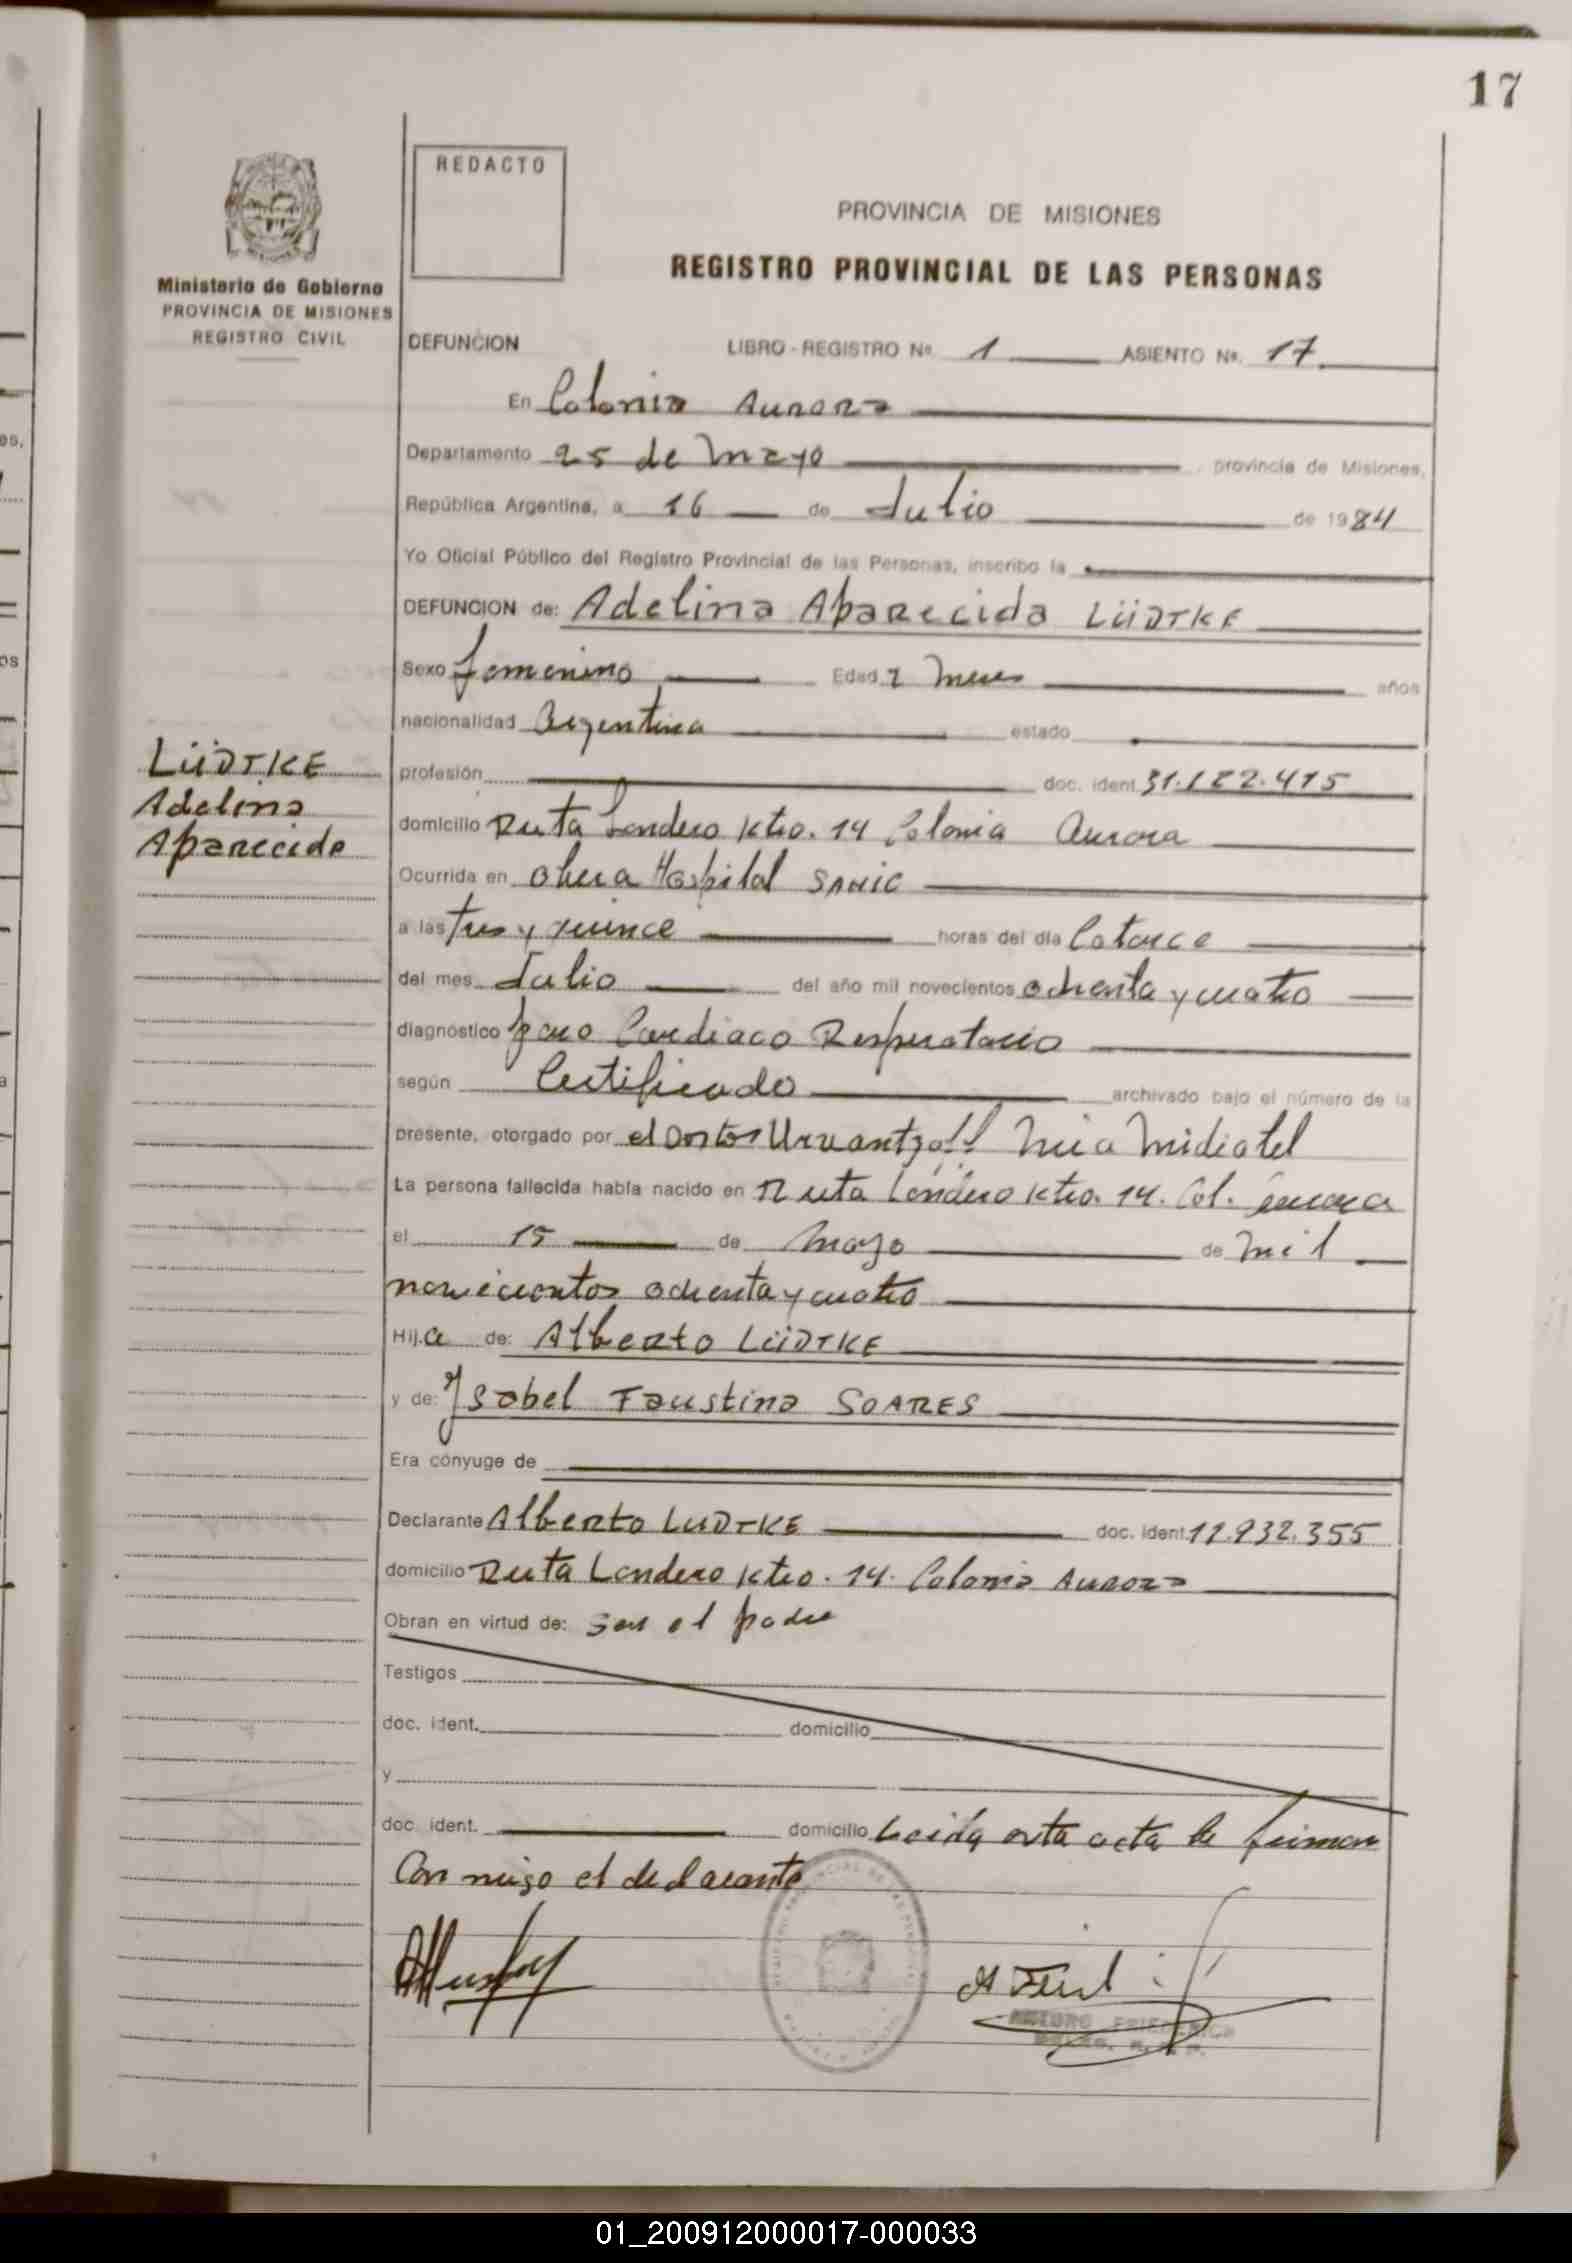 17
REDACTO
PROVINCIA DE MISIONES
REGISTRO PROVINCIAL DE LAS PERSONAS
Ministerio de Gobierno
PROVINCIA DE MISIONES
REGISTRO CIVIL
DEFUNCION LIBRO - REGISTRO Nº 1 ASIENTO Nº. 17
En Colonia Aurora
Departamento 25 de Mayo provincia de Misiones,
República Argentina, a 16 de Julio de 1984
Yo Oficial Público del Registro Provincial de las Personas, inscribo la
DEFUNCION de: Adelina Aparecida LÜDTKE
Sexo femenino Edad 2 meses años
nacionalidad Argentina estado
LÜDTKE
Adelina
Aparecida
profesión doc. ident. 31.122.415
domicilio Ruta Londero Ktro. 14 Colonia Aurora
Ocurrida en Obera Hospital SAMIC
a las tres y quince horas del día Catorce
del mes Julio del año mil novecientos ochenta y cuatro
diagnóstico paro Cardiaco Respiratorio
según Certificado archivado bajo el número de la
presente, otorgado por el Doctor Urvantzoff
La persona fallecida había nacido en Ruta Londero Ktro. 14. Col. Aurora
el 15 de Mayo de mil
novecientos ochenta y cuatro
Hija de: Alberto LÜDTKE
y de: Ysabel Faustina SOARES
Era cónyuge de
Declarante Alberto LUDTKE doc. ident. 12.932.355
domicilio Ruta Londero Ktro. 14. Colonia Aurora
Obran en virtud de: ser el padre
Testigos
doc. ident. domicilio
y
doc. ident. domicilio Leida esta acta la firman
Con migo el declarante
ARTURO FRIEDERICH
01_200912000017-000033